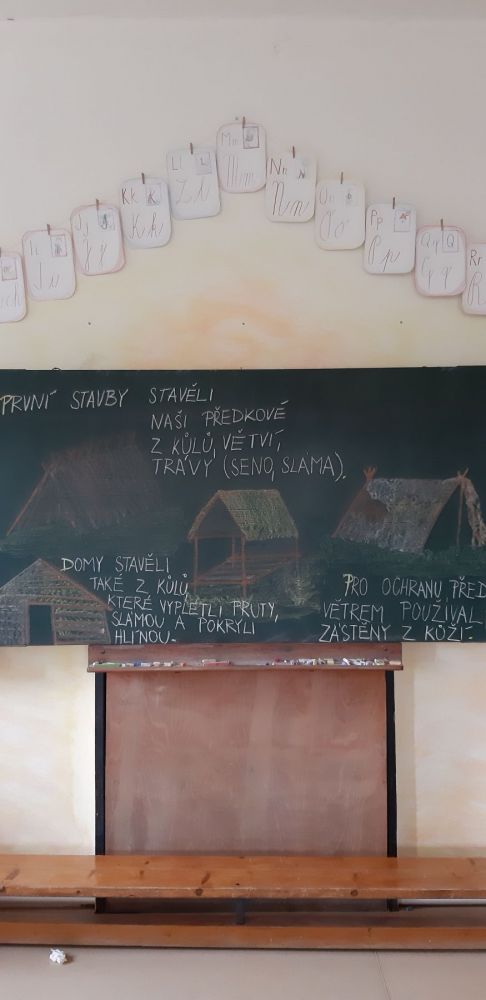 Mm
Mm
Ll L
Nn
Nn
Kk K
Kk
Oo
Jj
Jj
Pp
Pp
Qq Q
Qq
Ii
Rr
R
ch
PRVNÍ STAVBY STAVĚLI
NAŠI PŘEDKOVÉ
Z KŮLŮ, VĚTVÍ,
TRÁVY (SENO, SLÁMA).
DOMY STAVĚLI
TAKÉ Z KŮLŮ,
KTERÉ VYPLETLI PRUTY,
SLÁMOU A POKRYLI
HLÍNOU.
PRO OCHRANU PŘED
VĚTREM POUŽÍVAL
ZÁSTĚNY Z KŮŽÍ.